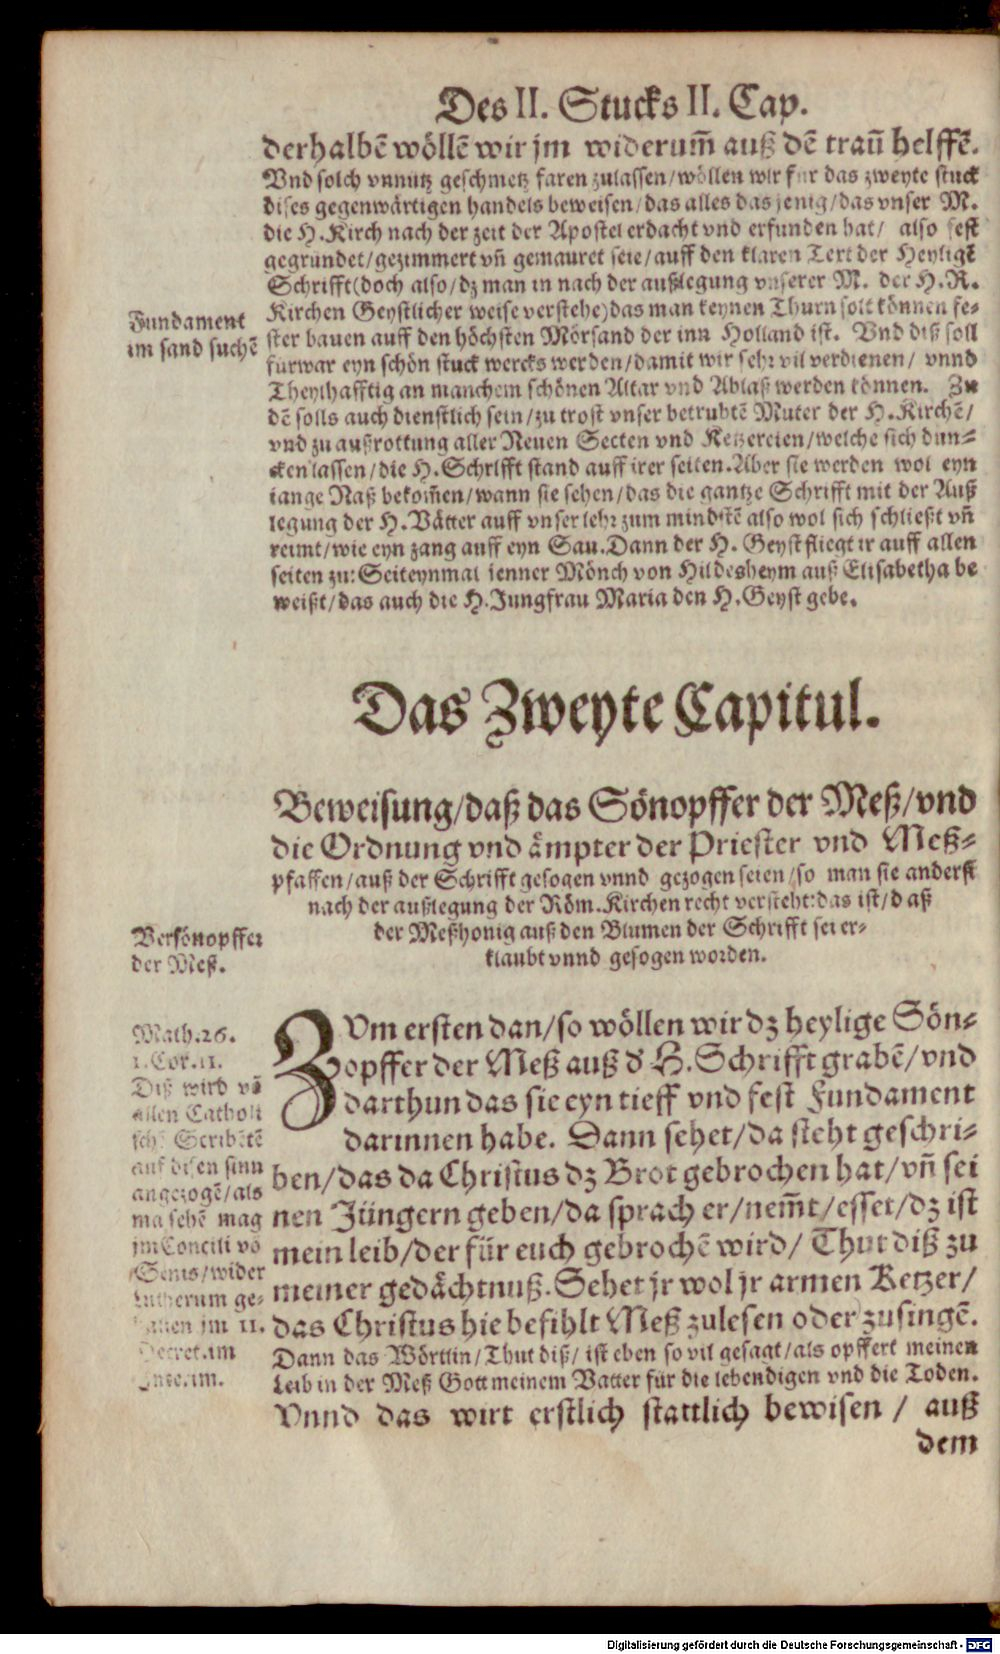 Des II. Stucks II. Cap.
derhalbē wöllē wir jm widerum̄ auß dē traū helffē.
Vnd solch vnnütz geschmetz faren zulassen/wöllen wir für das zweyte stuck
dises gegenwärtigen handels beweisen/das alles das jenig/das vnser M.
die H.Kirch nach der zeit der Apostel erdacht vnd erfunden hat/ also fest
gegründet/gezimmert vn̄ gemauret seie/auff den klaren Text der Heyligē
Schrifft(doch also/dz man in nach der außlegung vnserer M. der H.R.
Kirchen Geystlicher weise verstehe)das man keynen Thurn solt können fe-
ster bauen auff den höchsten Mörsand der inn Holland ist. Vnd diß soll
fürwar eyn schön stuck wercks werden/damit wir sehr vil verdienen/ vnnd
Theylhafftig an manchem schönen Altar vnd Ablaß werden können. Zu
dē solls auch dienstlich sein/zu trost vnser betrübtē Muter der H.Kirchē/
vnd zu außrottung aller Neuen Secten vnd Ketzereien/welche sich dun-
cken lassen/die H.Schrifft stand auff irer seiten.Aber sie werden wol eyn
lange Naß bekom̄en/wann sie sehen/das die gantze Schrifft mit der Auß
legung der H.Vätter auff vnser lehr zum mindstē also wol sich schließt vn̄
reimt/wie eyn zang auff eyn Sau.Dann der H. Geyst fliegt ir auff allen
seiten zu: Seiteynmal jenner Mönch von Hildesheym auß Elisabetha be
weißt/das auch die H.Jungfrau Maria den H.Geyst gebe.
Fundament
im sand suchē
Das Zweyte Capitul.
Beweisung/daß das Sönopffer der Meß/vnd
die Ordnung vnd ämpter der Priester vnd Meß-
pfaffen/auß der Schrifft gesogen vnnd gezogen seien/so man sie anderst
nach der außlegung der Röm.Kirchen recht versteht:das ist/daß
der Meßhonig auß den Blumen der Schrifft sei er-
klaubt vnnd gesogen worden.
Versönopffer
der Meß.
ZVm ersten dan/so wöllen wir dz heylige Sön-
opffer der Meß auß d' H.Schrifft grabē/vnd
darthun das sie eyn tieff vnd fest Fundament
darinnen habe. Dann sehet/da steht geschri-
ben/das da Christus dz Brot gebrochen hat/vn̄ sei
nen Jüngern geben/da sprach er/nem̄t/esset/dz ist
mein leib/der für euch gebrochē wird/ Thut diß zu
meiner gedächtnuß.Sehet jr wol jr armen Ketzer/
das Christus hie befihlt Meß zulesen oder zusingē.
Dann das Wörtlin/Thut diß/ ist eben so vil gesagt/als opffert meinen
Leib in der Meß Gott meinem Vatter für die lebendigen vnd die Toden.
Vnnd das wirt erstlich stattlich bewisen / auß
dem
Math.26.
1.Cor.11.
Diß wird vō
allen Catholi
sch. Scribētē
auf disen sinn
angezogē/als
ma sehē mag
jm Concili vō
Sens/wider
Lutherum ge-
halten jm 11.
Decret.im
Inte.im.
Digitalisierung gefördert durch die Deutsche Forschungsgemeinschaft - DFG